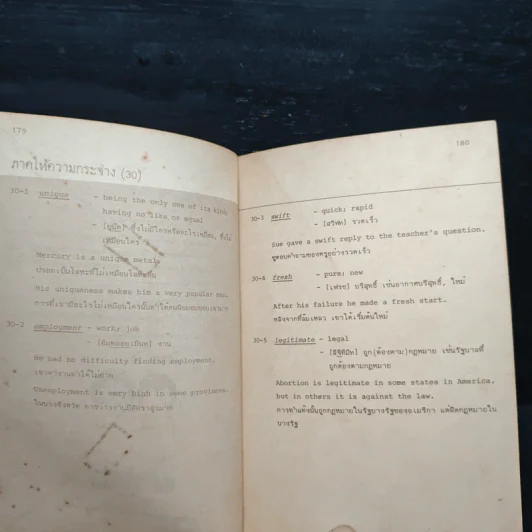 179
ภาคให้ความกระจ่าง (30)
30-1 unique - being the only one of its kind;
having no like or equal
- [ยูนิค] ซึ่งไม่มีใครหรืออะไรเหมือน, ซึ่งไม่
เหมือนใคร
Mercury is a unique metal.
ปรอทเป็นโลหะที่ไม่เหมือนโลหะอื่น
His uniqueness makes him a very popular man.
การที่เขามีอะไรไม่เหมือนใครนั้นทำให้คนนิยมชมชอบเขามาก
30-2 employment - work; job
งาน
He had no difficulty finding employment.
เขาหางานทำได้ไม่ยาก
Unemployment is very high in some provinces.
ในบางจังหวัด
180
30-3 swift - quick; rapid
- [สวิฟท] รวดเร็ว
Sue gave a swift reply to the teacher's question.
ซูตอบคำถามของครูอย่างรวดเร็ว
30-4 fresh - pure; new
- [เฟรช] บริสุทธิ์ เช่นอากาศบริสุทธิ์, ใหม่
After his failure he made a fresh start.
หลังจากที่ล้มเหลว เขาได้เริ่มต้นใหม่
30-5 legitimate - legal
ถูก(ต้องตาม)กฎหมาย เช่นรัฐบาลที่
ถูกต้องตามกฎหมาย
Abortion is legitimate in some states in America,
but in others it is against the law.
การทำแท้งนั้นถูกกฎหมายในรัฐบางรัฐของอเมริกา แต่ผิดกฎหมายใน
บางรัฐ